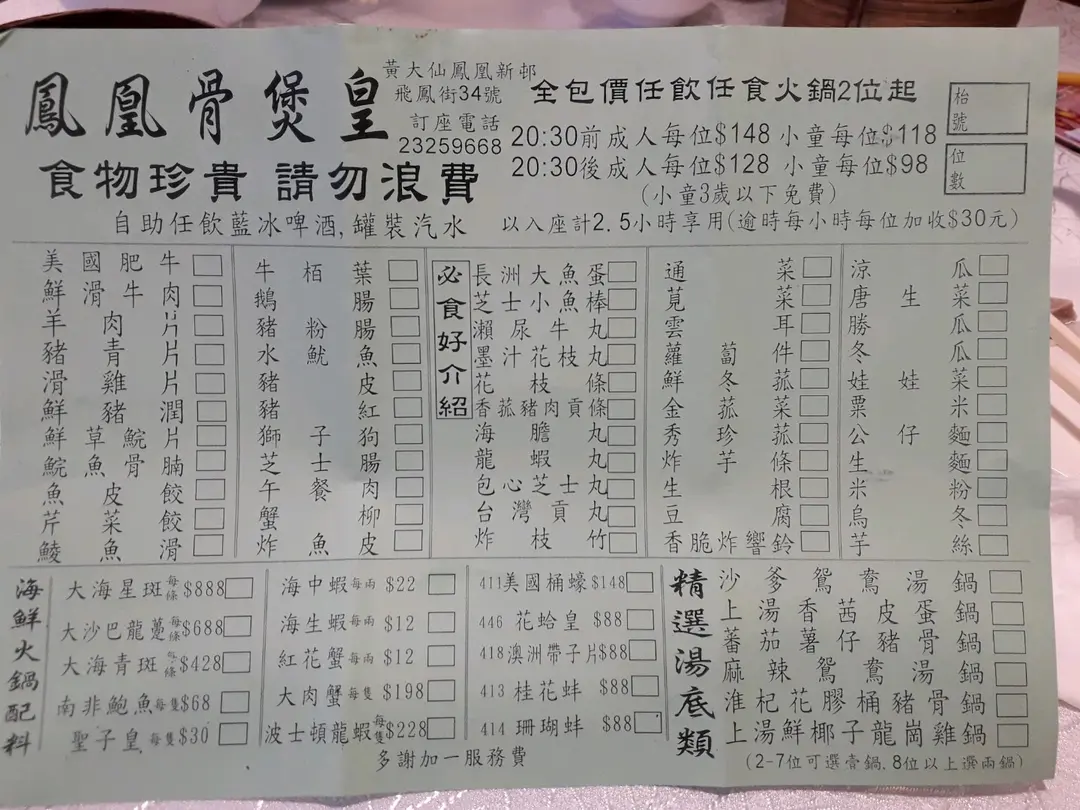 鳳凰骨煲皇
黃大仙鳳凰新邨
飛鳳街34號
訂座電話
23259668
全包價任飲任食火鍋2位起
20:30前成人每位$148 小童每位$118
20:30後成人每位$128 小童每位$98
(小童3歲以下免費)
枱號
位數
食物珍貴 請勿浪費
自助任飲藍冰啤酒, 罐裝汽水
以入座計2.5小時享用(逾時每小時每位加收$30元)
美國肥牛
鮮滑牛肉
羊肉片
豬青片
滑雞片
鮮豬潤
鮮草鯇片
鯇魚骨腩
魚皮餃
芹菜餃
鯪魚滑
牛栢葉
鵝腸
豬粉腸
水魷魚
豬皮
豬紅
獅子狗
芝士腸
午餐肉
蟹柳
炸魚皮
必食好介紹
長洲大魚蛋
芝士小魚棒
瀨尿牛丸
墨汁花枝丸
花枝條
香菰豬肉貢條
海膽丸
龍蝦丸
包心芝士丸
台灣貢丸
炸枝竹
通菜
莧菜
雲耳
蘿蔔件
鮮冬菰
金菰菜
秀珍菰
炸芋條
生根
豆腐
香脆炸響鈴
涼瓜
唐生菜
勝瓜
冬瓜
娃娃菜
粟米
公仔麵
生麵
米粉
烏冬
芋絲
海鮮火鍋配料
大海星斑每條$888
大沙巴龍躉每條$688
大海青斑每條$428
南非鮑魚每隻$68
聖子皇每隻$30
海中蝦每兩 $22
海生蝦每兩 $12
紅花蟹每兩 $12
大肉蟹每隻 $198
波士頓龍蝦每隻$228
411美國桶蠔$148
446 花蛤皇 $88
418澳洲帶子片$88
413 桂花蚌 $88
414 珊瑚蚌 $88
精選湯底類
沙爹鴛鴦湯鍋
上湯香茜皮蛋鍋
蕃茄薯仔豬骨鍋
麻辣鴛鴦湯鍋
淮杞花膠桶豬骨鍋
上湯鮮椰子龍崗雞鍋
(2-7位可選壹鍋, 8位以上選兩鍋)
多謝加一服務費